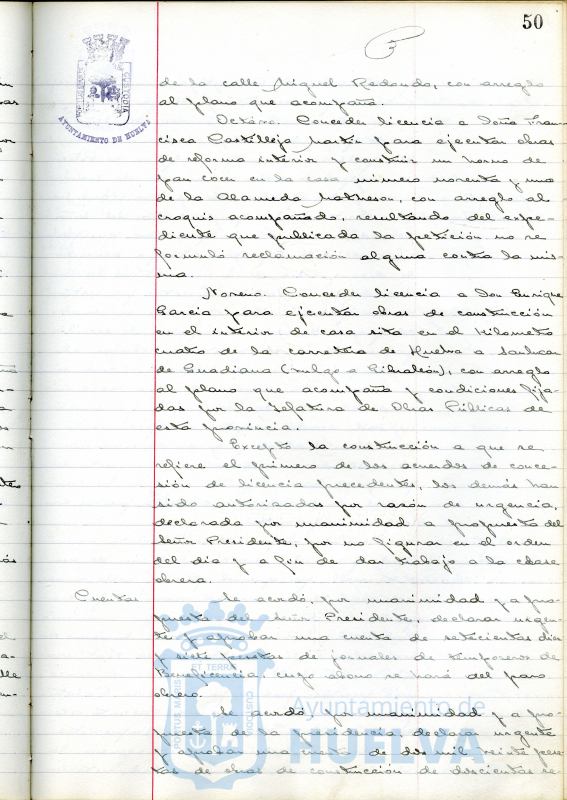 50
AYUNTAMIENTO DE HUELVA
de la calle Miguel Redondo, con arreglo
al plano que acompaña.
Octavo. Conceder licencia a Doña Fran-
cisca Castilleja Martín para ejecutar obras
de reforma interior y construir un horno de
pan cocer en la casa número noventa y uno
de la Alameda Matheson, con arreglo al
croquis acompañado, resultando del expe-
diente que publicada la petición no se
formuló reclamación alguna contra la mis-
ma.
Noveno. Conceder licencia a Don Enrique
García para ejecutar obras de construcción
en el interior de casa sita en el Kilometro
cuatro de la carretera de Huelva a Sanlucar
de Guadiana (vulgo a Gibraleón), con arreglo
al plano que acompaña y condiciones fija-
das por la Jefatura de Obras Públicas de
esta provincia.
Excepto la construcción a que se
refiere el primero de los acuerdos de conce-
sión de licencia precedentes, los demás han
sido autorizados por razón de urgencia,
declarada por unanimidad a propuesta del
Señor Presidente, por no figurar en el orden
del día y a fin de dar trabajo a la clase
obrera.
Cuentas
Se acordó, por unanimidad y a pro-
puesta del Señor Presidente, declarar urgen-
te y aprobar una cuenta de setecientas diez
y siete pesetas de jornales de temporeros de
Beneficencia, cuyo abono se hará del paro
obrero.
Se acordó, por unanimidad y a pro-
puesta de la presidencia, declarar urgente
y aprobar una cuenta de dos mil veinte pese-
tas de obras de construcción de doscientas se-
PORTUS MARIS ET TERRAE CUSTODIA
Ayuntamiento de
HUELVA